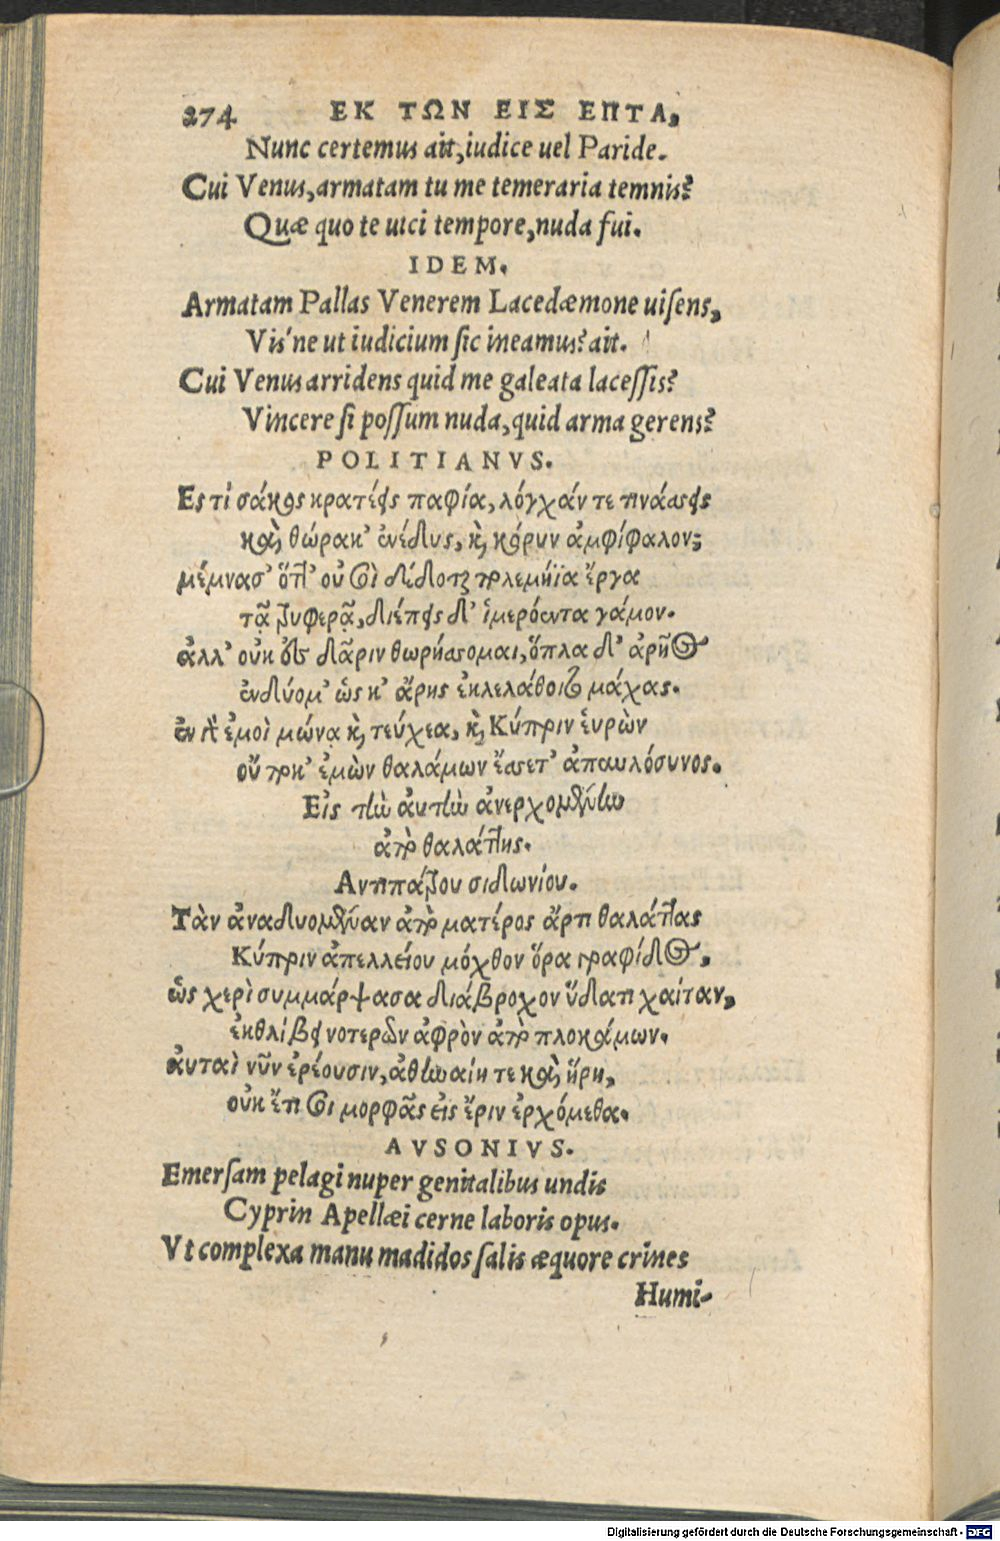 274 ΕΚ ΤΩΝ ΕΙΣ ΕΠΤΑ,
Nunc certemus ait, iudice uel Paride.
Cui Venus, armatam tu me temeraria temnis?
Quæ quo te uici tempore, nuda fui.
IDEM.
Armatam Pallas Venerem Lacedæmone uiſens,
Viſ'ne ut iudicium ſic ineamus? ait.
Cui Venus arridens quid me galeata laceſſis?
Vincere ſi poſſum nuda, quid arma gerens?
POLITIANVS.
Εστὶ σάκος κρατέεις παφία, λόγχάν τε τινάσσεις
καὶ θώρακ' ἐνέδυς, κὶ κόρυν ἀμφίφαλον;
μέμνασ' ὅττ' οὐ σοὶ δέδοται πολεμήϊα ἔργα
τᾷ τρυφερᾷ, διέπεις δ' ἱμερόεντα γάμον.
ἀλλ' οὐκ ἐς δᾶριν θωρήσσομαι, ὅπλα δ' ἀρῆος
ἐνδύομ' ὥς κ' ἄρης ἐκλελάθοιτο μάχας.
ἐν δ' ἐμοὶ μώνᾳ κὶ τεύχεα, κὶ Κύπριν ἑυρὼν
οὔποκ' ἐμὼν θαλάμων ἔσσετ' ἀπαυλόσυνος.
Εἰς τὴν ἀυτὴν ἀνερχομένην
ἀπὸ θαλάττης.
Αντιπάτρου σιδωνίου.
Τὰν ἀναδυομέναν ἀπὸ ματέρος ἄρτι θαλάττας
Κύπριν ἀπελλείου μόχθον ὅρα γραφίδος,
ὡς χερὶ συμμάρψασα διάβροχον ὕδατι χαίταν,
ἐκθλίβει νοτερῶν ἀφρὸν ἀπὸ πλοκάμων.
ἀυταὶ νῦν ἐρέουσιν, ἀθηναίη τε καὶ ἥρη,
οὐκ ἔτι σοι μορφᾶς εἰς ἔριν ἐρχόμεθα.
AVSONIVS.
Emerſam pelagi nuper genitalibus undis
Cyprin Apellæi cerne laboris opus.
Vt complexa manu madidos ſalis æquore crines
Humi-
Digitalisierung gefördert durch die Deutsche Forschungsgemeinschaft - DFG